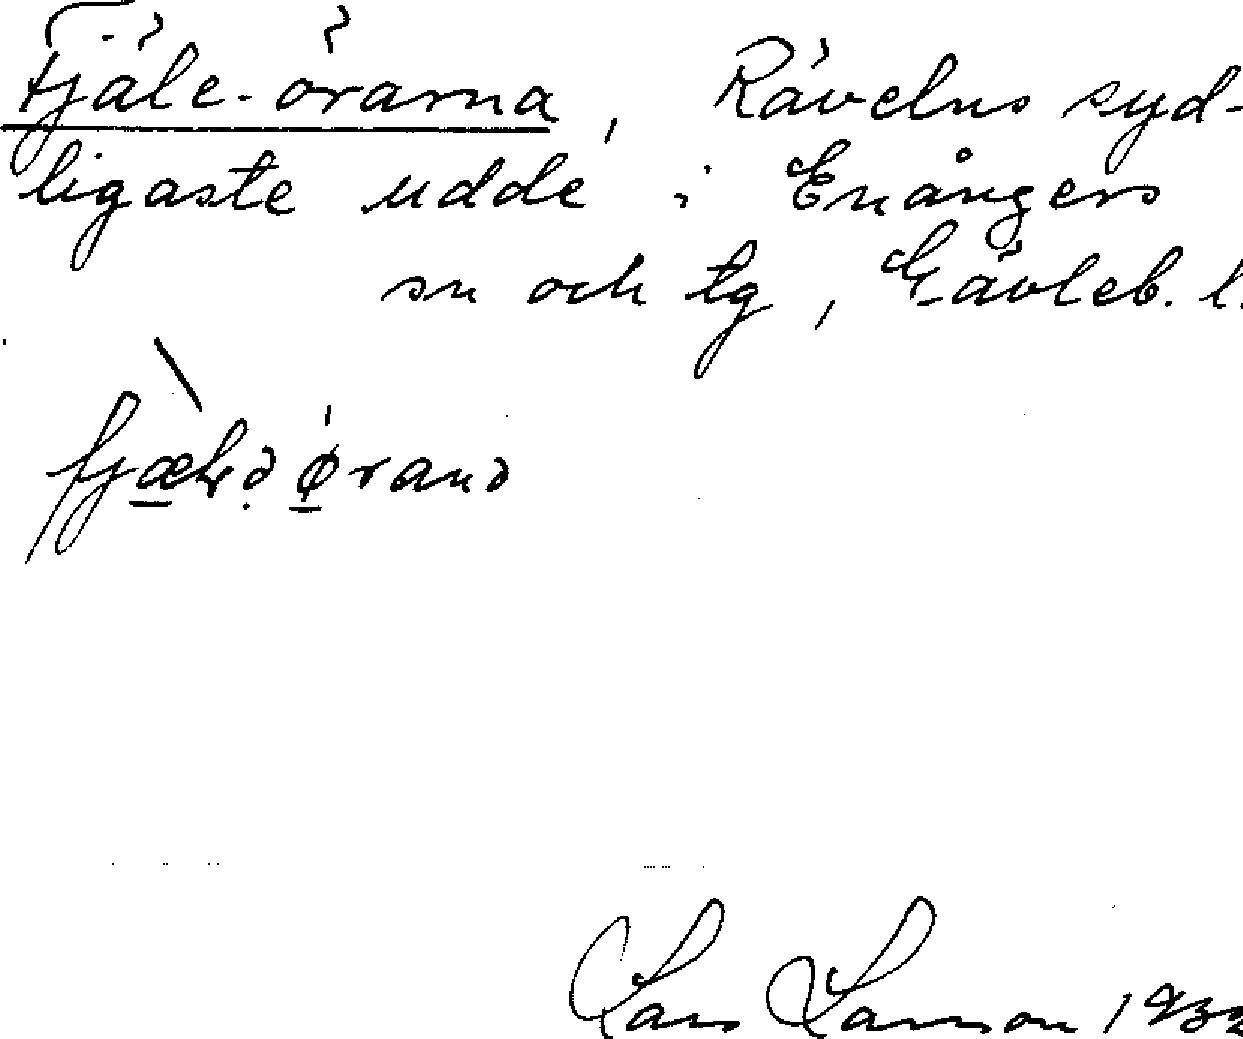 Fjäle-örarna, Rävelns syd-
ligaste udde i Enångers
sn och tg, Gävleb. l.
Lars Larsson 1932